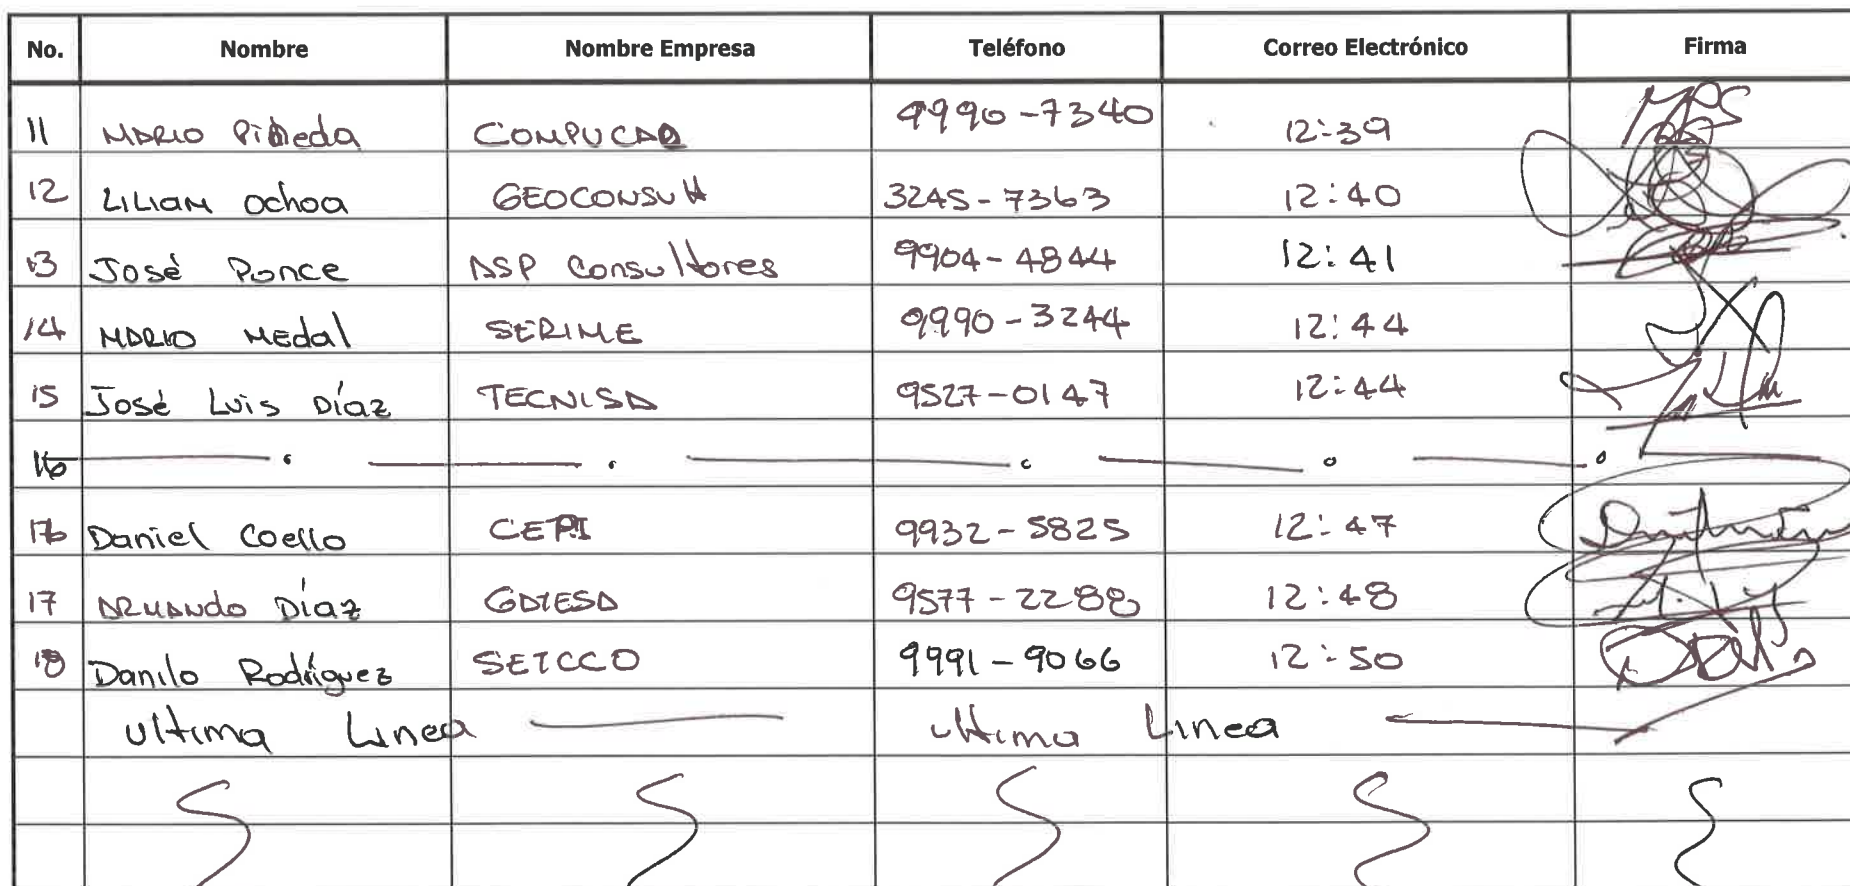 No. Nombre Nombre Empresa Teléfono Correo Electrónico Firma
11 MARIO Pineda COMPUCAD 9990-7340 12:39
12 LILIAM Ochoa GEOCONSULT 3245-7363 12:40
13 José Ponce ASP Consultores 9904-4844 12:41
14 MARIO Medal SERIME 9990-3244 12:44
15 José Luis Díaz TECNISA 9527-0147 12:44
16
16 Daniel Coello CEPI 9932-5825 12:47
17 ARMANDO Díaz GAIESA 9577-2288 12:48
18 Danilo Rodríguez SETCCO 9991-9066 12:50
ultima Linea ultima Linea